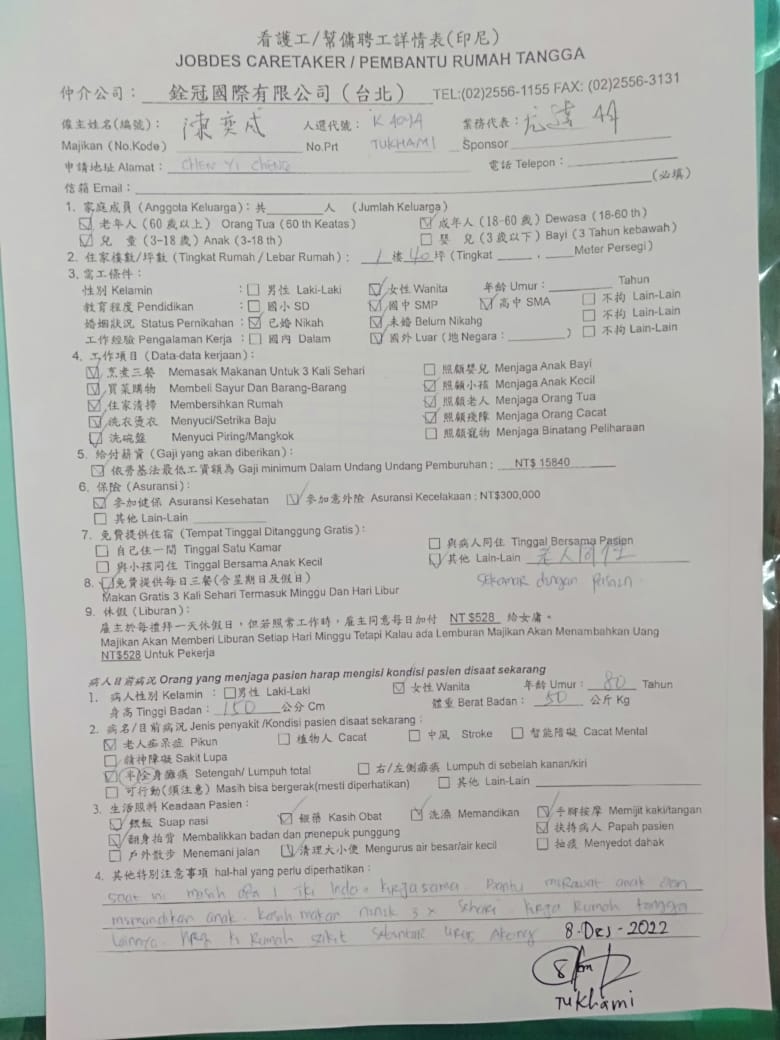 看護工/幫傭聘工詳情表(印尼)
JOBDES CARETAKER / PEMBANTU RUMAH TANGGA
仲介公司： 銓冠國際有限公司（台北） TEL:(02)2556-1155 FAX: (02)2556-3131
僱主姓名(編號)： 陳奕成 人選代號： K 404A 業務代表：
Majikan (No.Kode) No.Prt TUKHAMI Sponsor
申請地址 Alamat： CHEN YI CHENG 電話 Telepon：
信箱 Email： (必填)
1. 家庭成員 (Anggota Keluarga)：共 人 (Jumlah Keluarga)
☑ 老年人 (60 歲以上) Orang Tua (60 th Keatas) ☑ 成年人 (18-60 歲) Dewasa (18-60 th)
☑ 兒 童 (3-18 歲) Anak (3-18 th) □ 嬰 兒 (3 歲以下) Bayi (3 Tahun kebawah)
2. 住家樓數/坪數 (Tingkat Rumah / Lebar Rumah)： 1 樓 40 坪 (Tingkat , Meter Persegi)
3. 需工條件：
性別 Kelamin ：□ 男性 Laki-Laki ☑ 女性 Wanita 年齡 Umur： Tahun
教育程度 Pendidikan ：□ 國小 SD ☑ 國中 SMP ☑ 高中 SMA □ 不拘 Lain-Lain
婚姻狀況 Status Pernikahan ：☑ 已婚 Nikah ☑ 未婚 Belum Nikahg □ 不拘 Lain-Lain
工作經驗 Pengalaman Kerja ：□ 國內 Dalam ☑ 國外 Luar (地 Negara： ) □ 不拘 Lain-Lain
4. 工作項目 (Data-data kerjaan)：
☑ 烹煮三餐 Memasak Makanan Untuk 3 Kali Sehari □ 照顧嬰兒 Menjaga Anak Bayi
☑ 買菜購物 Membeli Sayur Dan Barang-Barang ☑ 照顧小孩 Menjaga Anak Kecil
☑ 住家清掃 Membersihkan Rumah ☑ 照顧老人 Menjaga Orang Tua
☑ 洗衣燙衣 Menyuci/Setrika Baju ☑ 照顧殘障 Menjaga Orang Cacat
☑ 洗碗盤 Menyuci Piring/Mangkok □ 照顧寵物 Menjaga Binatang Peliharaan
5. 給付薪資 (Gaji yang akan diberikan)：
☑ 依勞基法最低工資額為 Gaji minimum Dalam Undang Undang Pemburuhan： NT$ 15840
6. 保險 (Asuransi)：
☑ 參加健保 Asuransi Kesehatan ☑ 參加意外險 Asuransi Kecelakaan：NT$300,000
□ 其他 Lain-Lain
7. 免費提供住宿 (Tempat Tinggal Ditanggung Gratis)：
□ 自己住一間 Tinggal Satu Kamar □ 與病人同住 Tinggal Bersama Pasien
□ 與小孩同住 Tinggal Bersama Anak Kecil ☑ 其他 Lain-Lain 老人同住
8. ☑免費提供每日三餐(含星期日及假日) sekamar dengan pasien
Makan Gratis 3 Kali Sehari Termasuk Minggu Dan Hari Libur
9. 休假 (Liburan)：
雇主於每禮拜一天休假日，但若照常工作時，雇主同意每日加付 NT $528 給女傭。
Majikan Akan Memberi Liburan Setiap Hari Minggu Tetapi Kalau ada Lemburan Majikan Akan Menambahkan Uang
NT$528 Untuk Pekerja
病人目前病況 Orang yang menjaga pasien harap mengisi kondisi pasien disaat sekarang
1. 病人性別 Kelamin ：□男性 Laki-Laki ☑ 女性 Wanita 年齡 Umur： 80 Tahun
身高 Tinggi Badan： 150 公分 Cm 體重 Berat Badan： 50 公斤 Kg
2. 病名/目前病況 Jenis penyakit /Kondisi pasien disaat sekarang：
☑ 老人痴呆症 Pikun □ 植物人 Cacat □ 中風 Stroke □ 智能障礙 Cacat Mental
□ 精神障礙 Sakit Lupa
☑ 半/全身癱瘓 Setengah/ Lumpuh total □ 右/左側癱瘓 Lumpuh di sebelah kanan/kiri
□ 可行動(須注意) Masih bisa bergerak(mesti diperhatikan) □ 其他 Lain-Lain
3. 生活照料 Keadaan Pasien：
☑ 餵飯 Suap nasi ☑ 餵藥 Kasih Obat ☑ 洗澡 Memandikan ☑ 手腳按摩 Memijit kaki/tangan
☑ 翻身拍背 Membalikkan badan dan menepuk punggung ☑ 扶持病人 Papah pasien
□ 戶外散步 Menemani jalan ☑ 清理大小便 Mengurus air besar/air kecil □ 抽痰 Menyedot dahak
4. 其他特別注意事項 hal-hal yang perlu diperhatikan：
saat ini masih ada 1 TKI Indo. kerja sama. Bantu merawat anak dan
memandikan anak. kasih makan nenek 3x sehari. kerja rumah tangga
lainnya. ke rumah sakit sebentar urus
8. Des - 2022
TUKhami